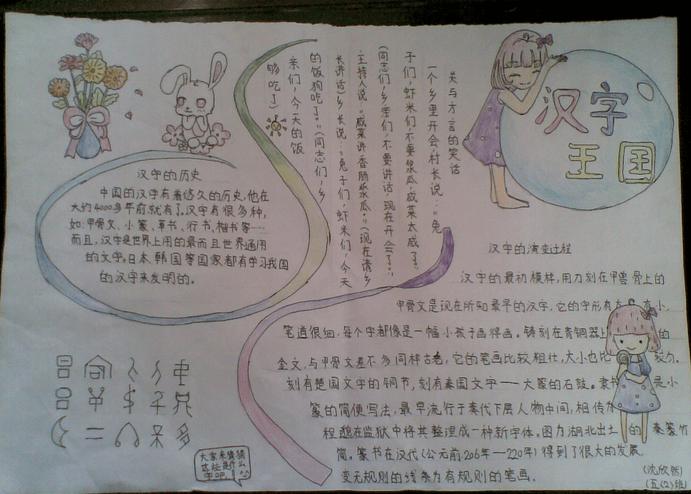 汉字
王国
关与方言的笑话
一个乡里开会,村长说:“兔
子们,虾米们,不要浆瓜,咸菜太咸了。”
(同志们,乡亲们,不要讲话,现在开会了。)
主持人说:“咸菜请香肠浆瓜。”(现在请乡
长讲话)乡长说:“兔子们,虾米们,今天
的饭狗吃了。”(同志们,乡
亲们,今天的饭
够吃了)
汉字的历史
中国的汉字有着悠久的历史,他在
大约4000多年前就有了,汉字有很多种,
如:甲骨文、小篆、草书、行书、楷书等…
而且,汉字是世界上用的最而且世界通用
的文字,日本、韩国等国家都有学习我国
的汉字来发明的。
汉字的演变过程
汉字的最初模样,用刀刻在甲兽骨上的
甲骨文是现在所知最早的汉字,它的字形有小,
笔道很细,每个字都像是一幅小孩子画得画。铸刻在青铜器上的
金文,与甲骨文差不多同样古老,它的笔画比较粗壮,大小也比较匀。
刻有楚国文字的铜节,刻有秦国文字——大篆的石鼓。隶书是小
篆的简便写法,最早流行于秦代下层人物中间,相传
程邈在监狱中将其整理成一种新字体。图为湖北出土的秦篆竹
简。篆书在汉代(公元前206年—220年)得到了很大的发展
变无规则的线条为有规则的笔画。
大家来猜猜
这些是什么
字吧
(沈欣然)
(五(2)班)